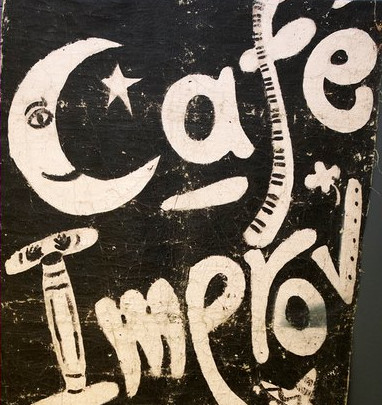 Café
Improv